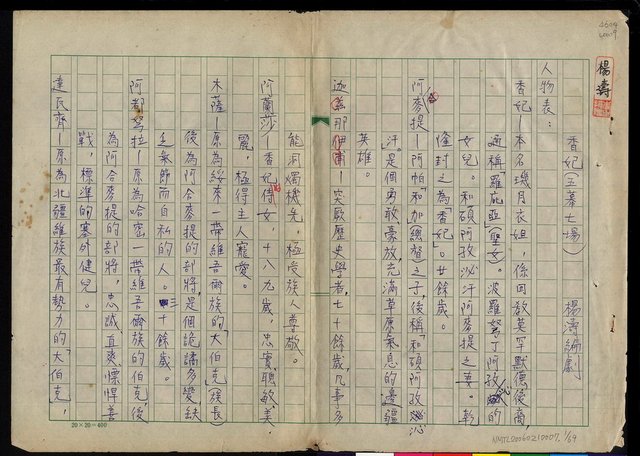 香妃(五幕七場) 楊濤編劇
人物表：
香妃—本名璣月衣姐，係回教莫罕默德後裔
通稱「羅庇亞」(聖女)。波羅努丁阿孜的
女兒。和碩阿孜泌汗阿麥提之妻。乾
隆封之為香妃。廿餘歲。
阿麥提—阿帕「和加總督」之子，後稱「和碩阿孜泌
汗。是個勇敢豪放，充滿草原氣息的邊疆
英雄。
迦那伊—突厥歷史學者，七十餘歲，凡事多
能洞燭機先，極受族人尊敬。
阿蘭莎—香妃侍女，十八九歲，忠實、聰敏、美
麗，極得主人寵愛。
木薩—原為綏來一帶維吾爾族的「大伯克」(族長)
後為阿合麥提的部將，是個詭譎多變，缺
乏氣節而自私的人。三十餘歲。
阿都努拉—原為哈密一帶維吾爾族的伯克，後
為阿合麥提的部將，忠誠直爽、慓悍善
戰，標準的塞外健兒。
達氏齊—原為北疆維族最有勢力的「大伯克」，
楊濤
20×20=400
NMTL20060210007, 1/69